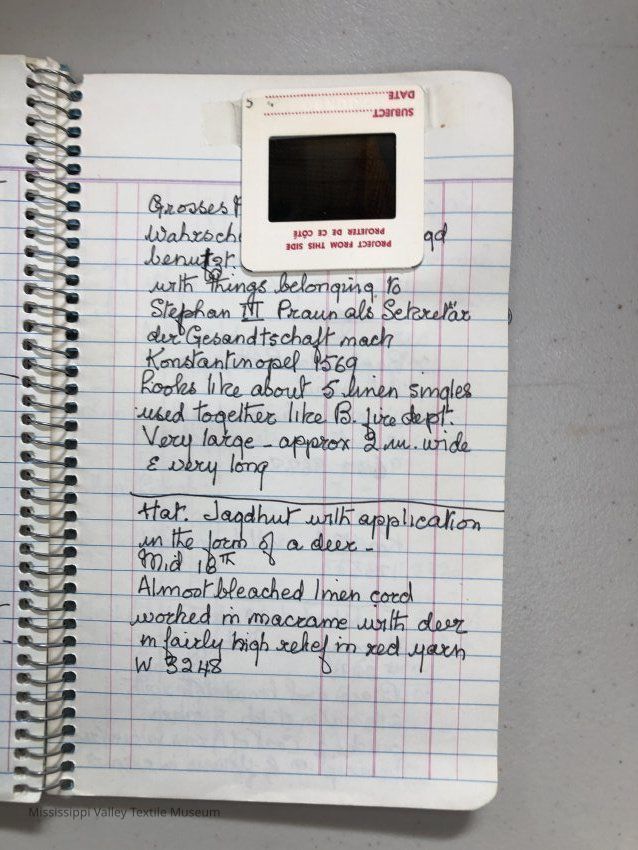 S
DATE
SUBJECT
PROJECT FROM THIS SIDE
PROJETER DE CE CÔTÉ
Grosses
Wahrsch gd
benutzt.
with things belonging to
Stephan III Praun als Sekretär
der Gesandtschaft nach
Konstantinopel 1569
Looks like about 5 linen singles
used together like B. fire dept.
Very large - approx 2 m. wide
& very long
Hat. Jagdhut with application
in the form of a deer -
Mid 18th
Almost bleached linen cord
worked in macrame with deer
in fairly high relief in red yarn
W 3248
Mississippi Valley Textile Museum